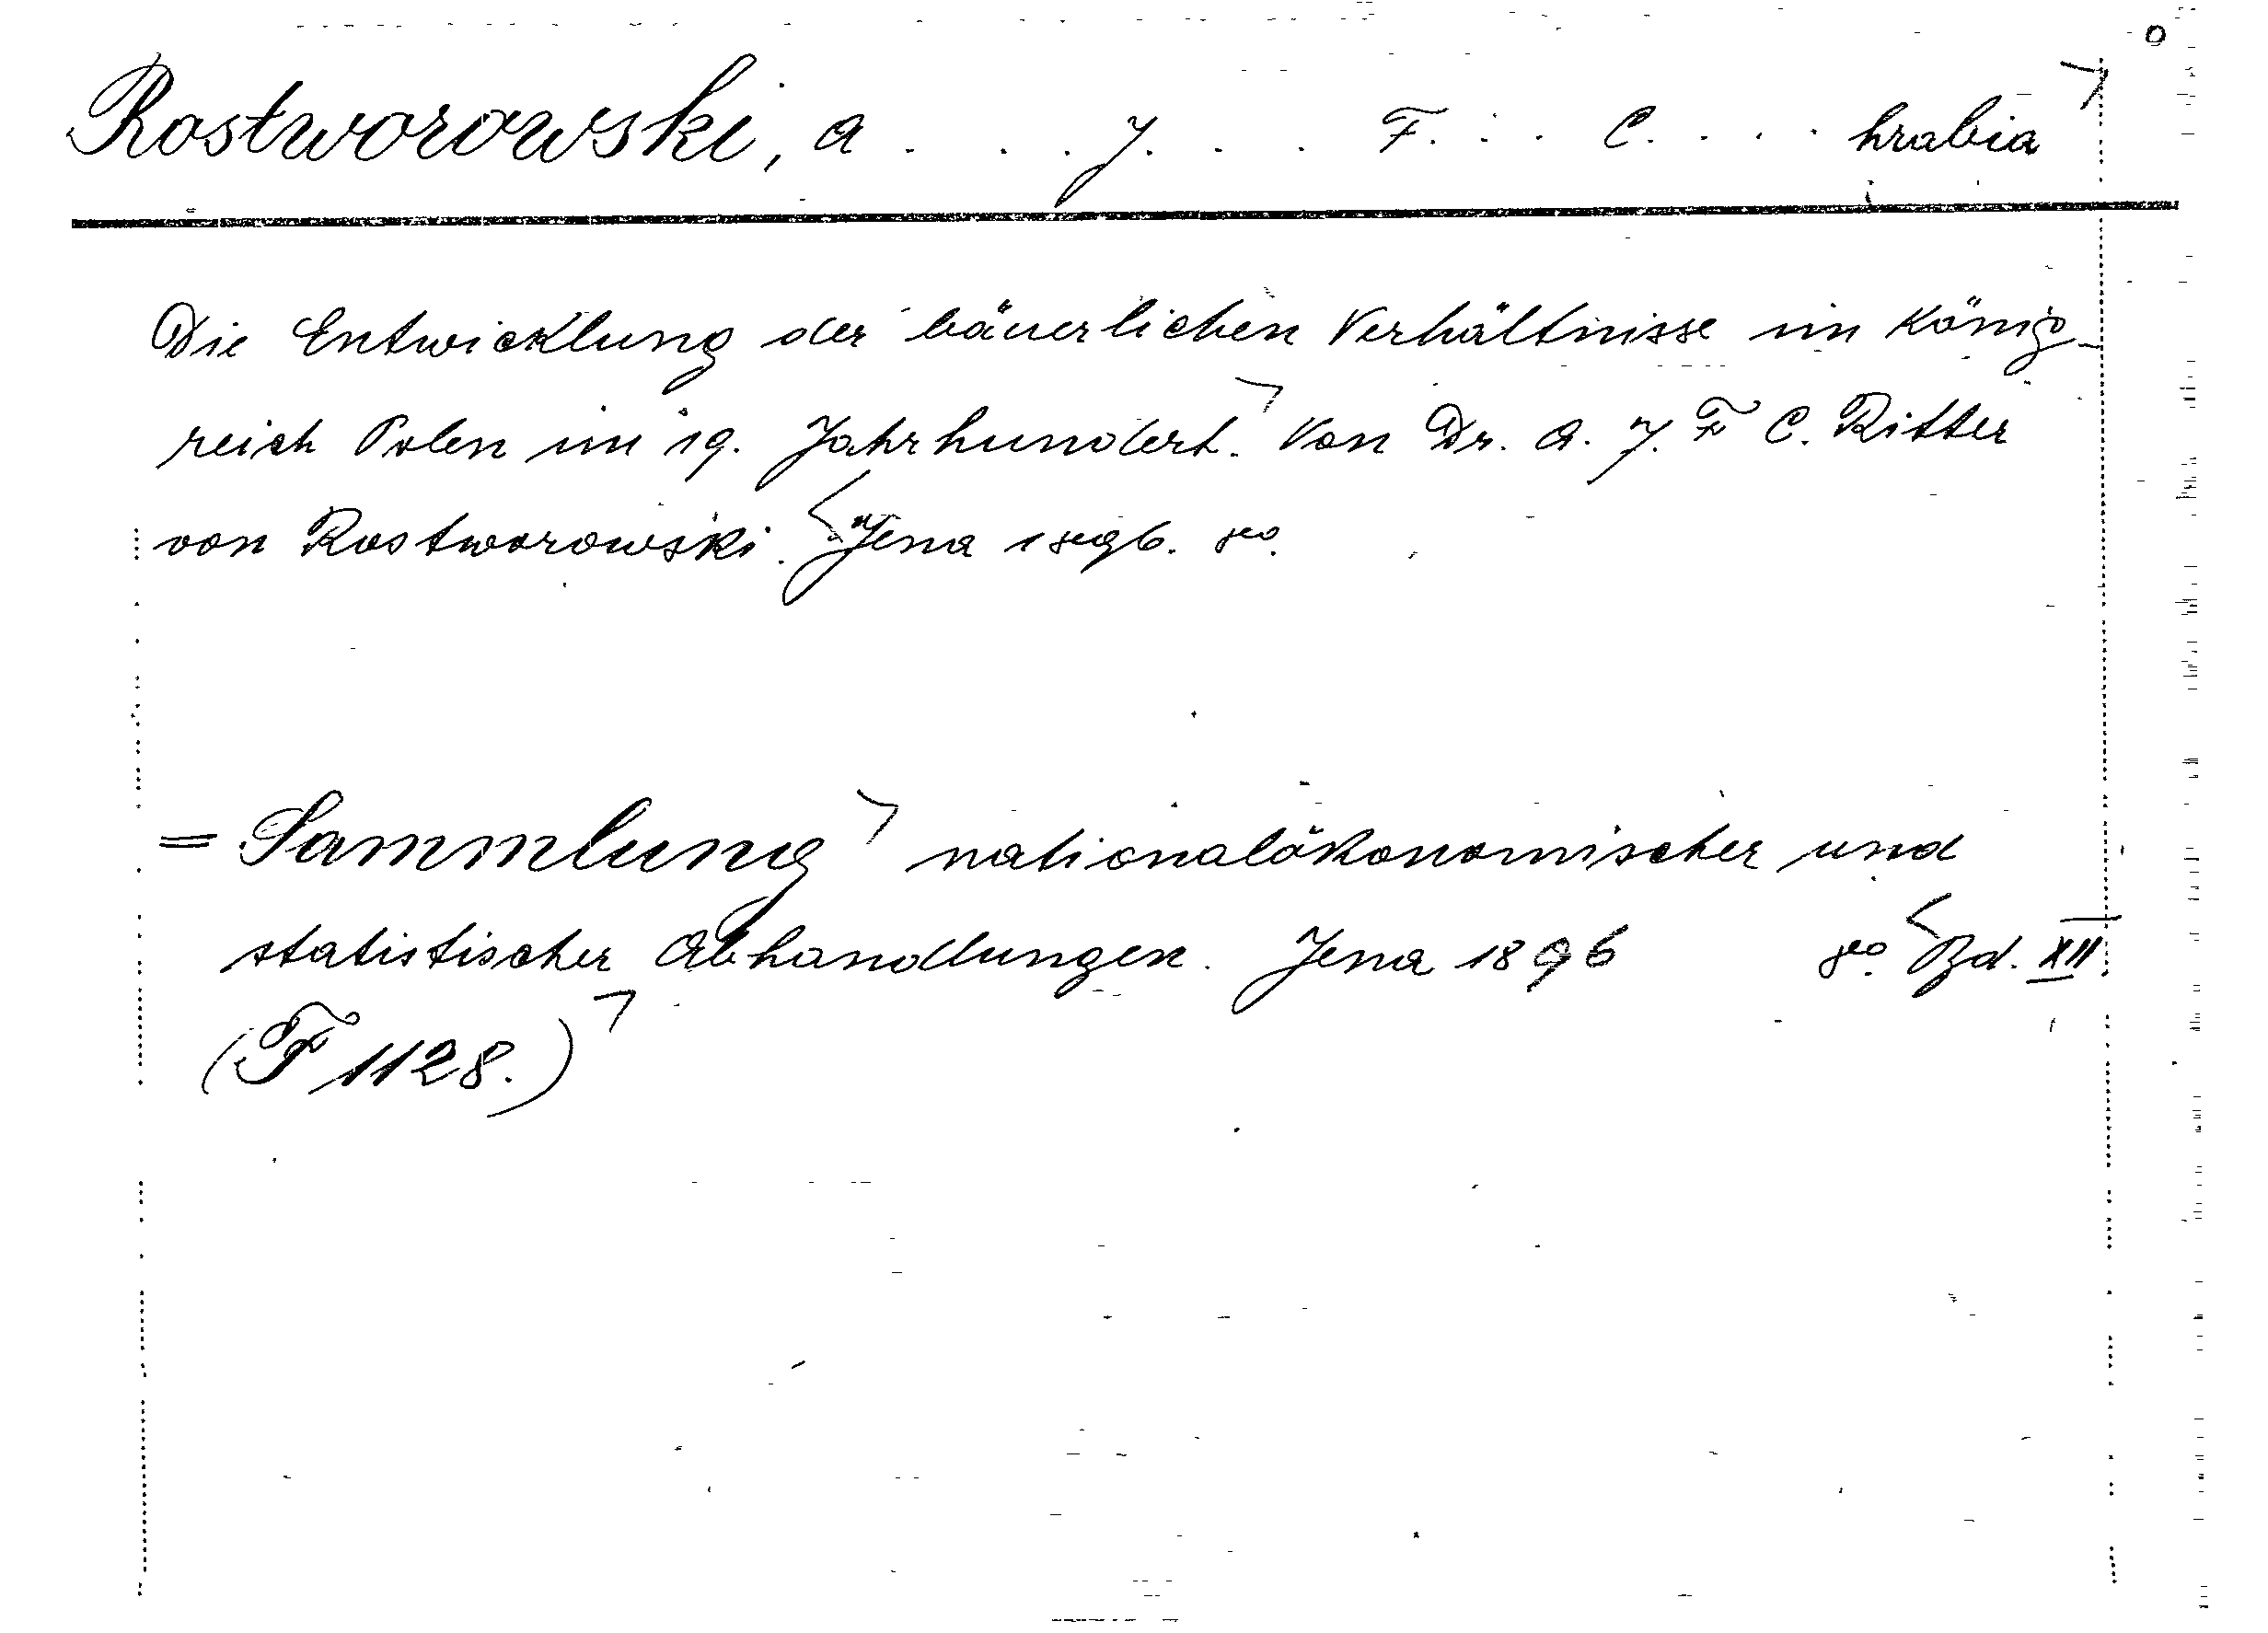 Rostworowski, A . . . J. . . F. . . C. . . . hrabia
Die Entwicklung der bäuerlichen Verhältnisse im König-
reich Polen im 19. Jahrhundert. Von Dr. A. J. F C. Ritter
von Rostworowski. Jena 1896. 8º.
= Sammlung nationalökonomischer und
statistischer Abhandlungen. Jena 1896 8º. Bd. XII.
(F 1128.)